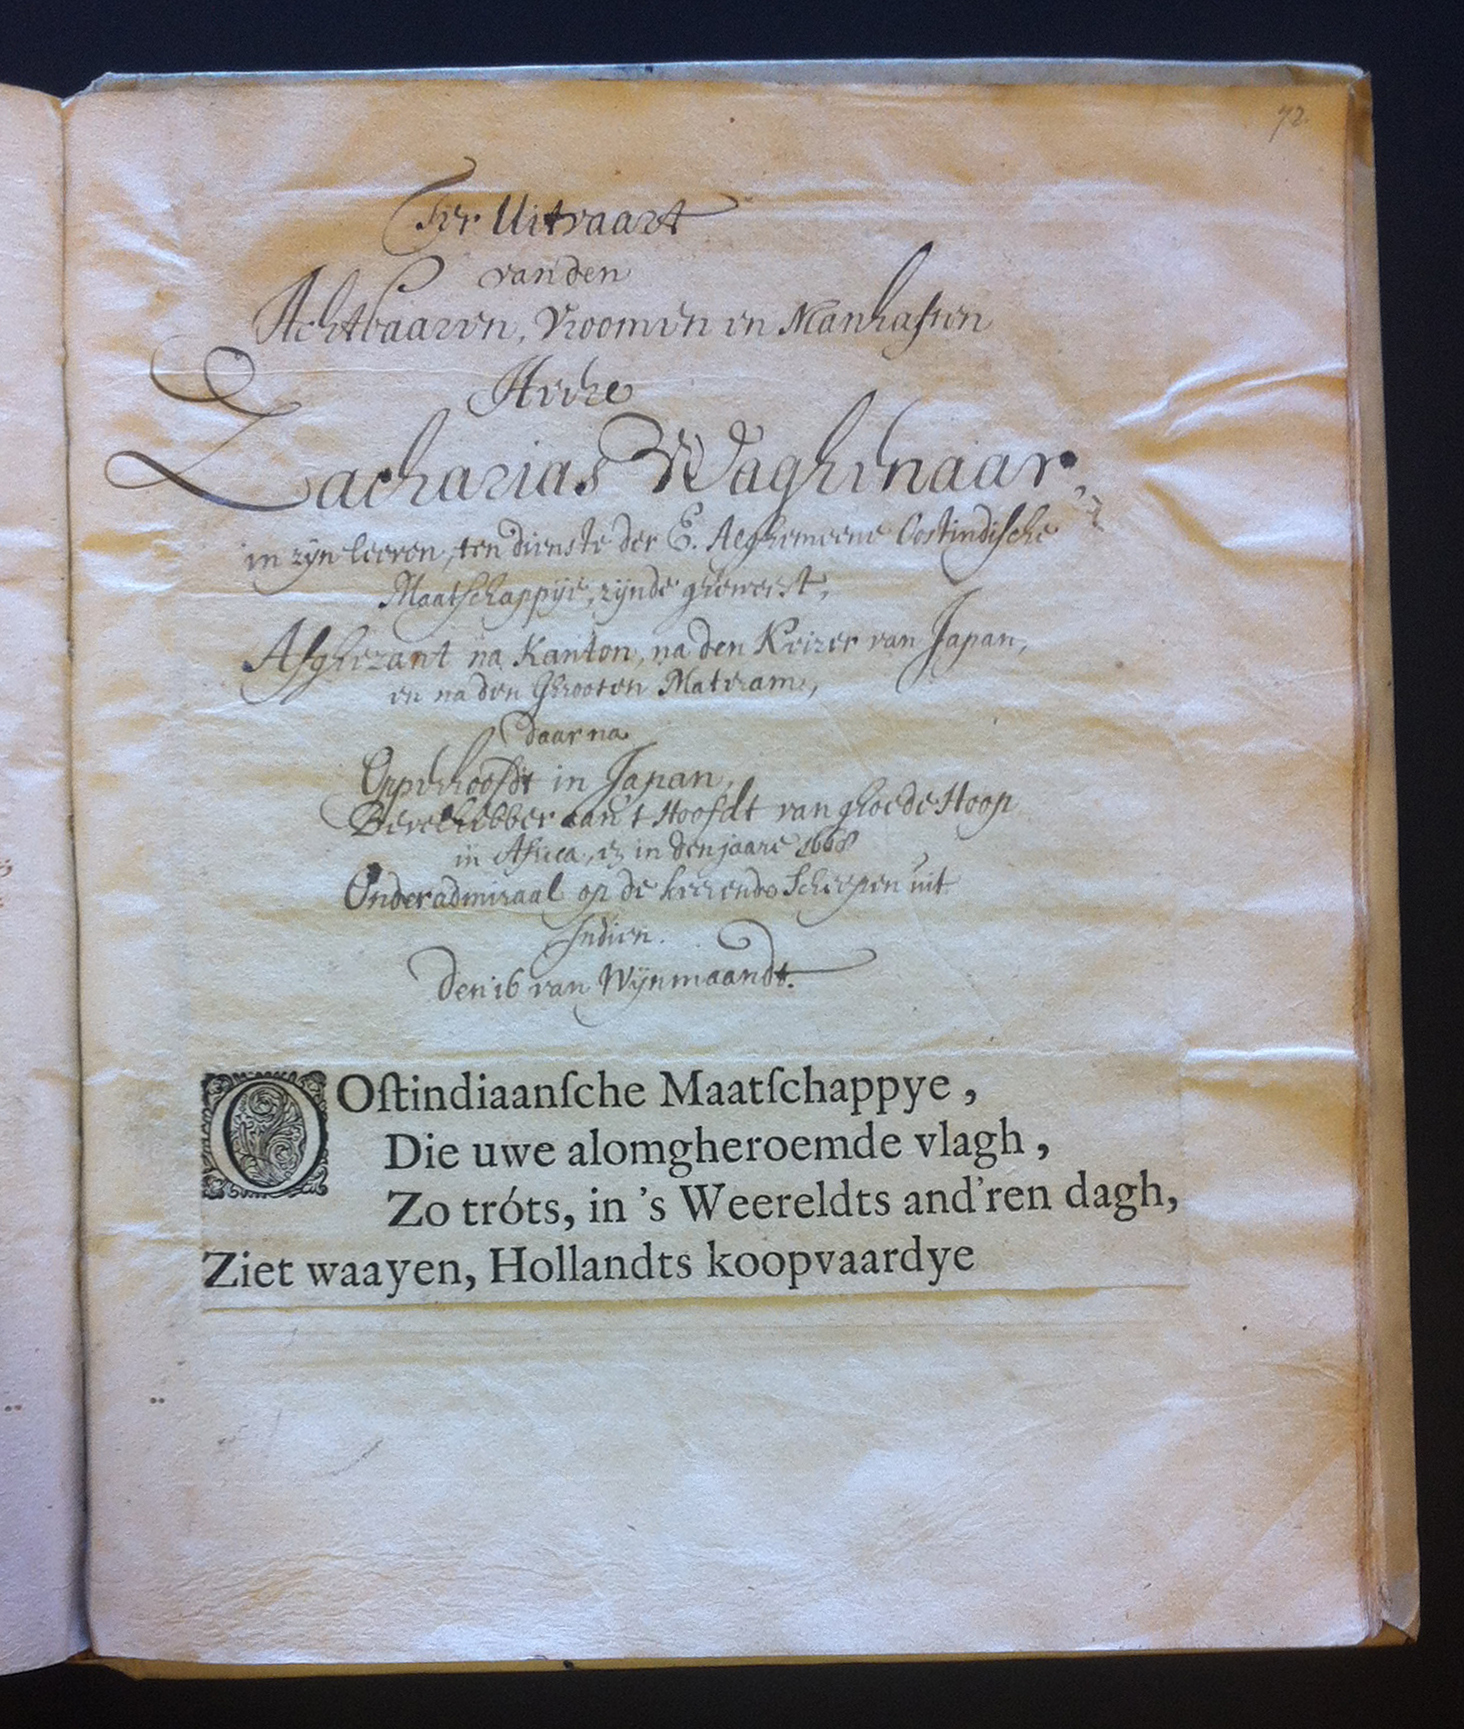 72.
Ter Uitvaart
van den
Achtbaaren, Vroomen en Manhaften
Heere
Zacharias Waghenaar,
in zyn leeven, ten dienste der E. Alghemeene Oostindische
Maatschappye, zynde gheweest,
Afghezant na Kanton, na den Keizer van Japan,
en na den Grooten Materam,
daar na
Opperhoofdt in Japan,
Bevelhebber aan 't Hoofdt van ghoede Hoop
in Africa, in den jaare 1668
Onderadmiraal op de keerende Scheepen uit
Indien.
Den 16 van Wynmaandt.
OOſtindiaanſche Maatſchappye,
Die uwe alomgheroemde vlagh,
Zo tróts, in 's Weereldts and'ren dagh,
Ziet waayen, Hollandts koopvaardye